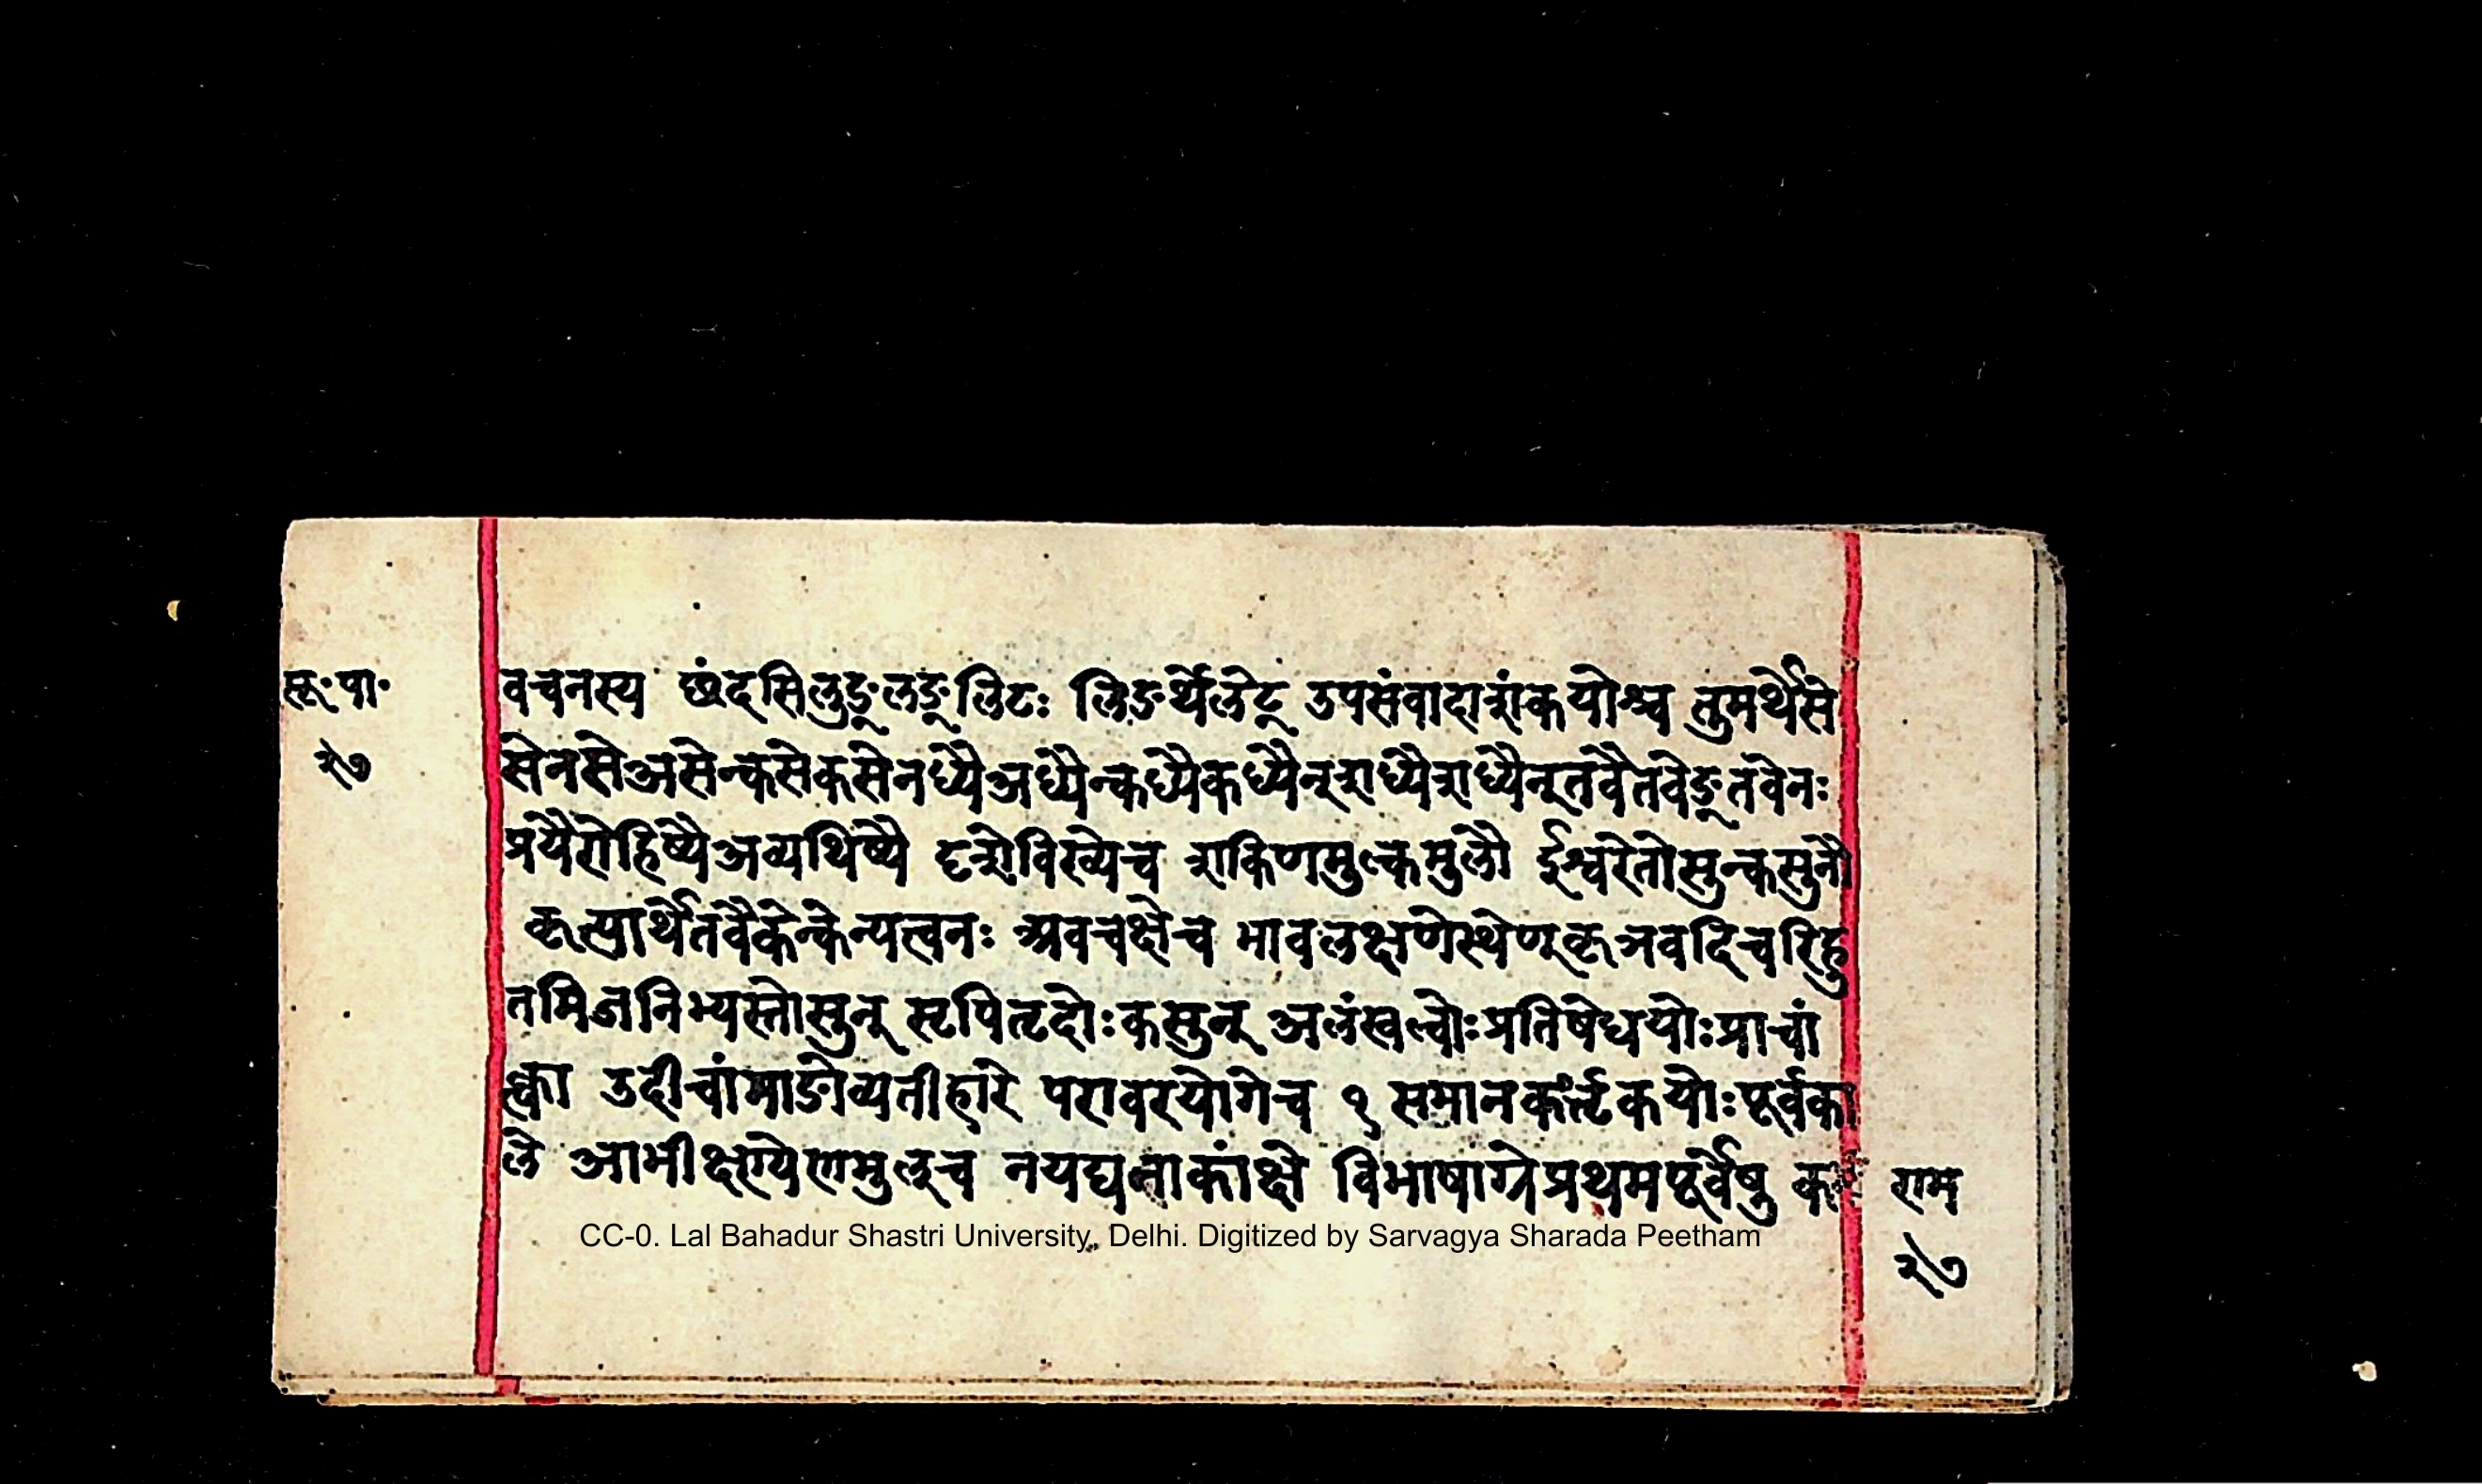 सू॰पा॰
२७
वचनस्य छंदसिलुङ्लङ्लिटः लिङर्थेलेट् उपसंवादाशंकयोश्च तुमर्थेसे
सेनसेअसेन्क्सेकसेनध्यैअध्यैन्कध्यैकध्यैन्शध्यैशध्यैन्तवैतवेङ्तवेनः
प्रयैरोहिष्यैअव्यथिष्यै दृशेविख्येच शकिणमुल्कमुलौ ईश्वरेतोसुन्कसुनौ
कृत्यार्थेतवैकेन्केन्यत्वनः अवचक्षेच भावलक्षणेस्थेण्कृञवदिचरिहु
तमिजनिभ्यस्तोसुन् सृपितृदोःकसुन् अलंखल्वोःप्रतिषेधयोःप्राचां
क्त्वा उदीचांमाङोव्यतीहारे परावरयोगेच १ समानकर्त्तृकयोःपूर्वका
ले आभीक्ष्ण्येणमुल्च नयद्यनाकांक्षे विभाषाग्रेप्रथमपूर्वेषु क
राम
२७
CC-0. Lal Bahadur Shastri University, Delhi. Digitized by Sarvagya Sharada Peetham